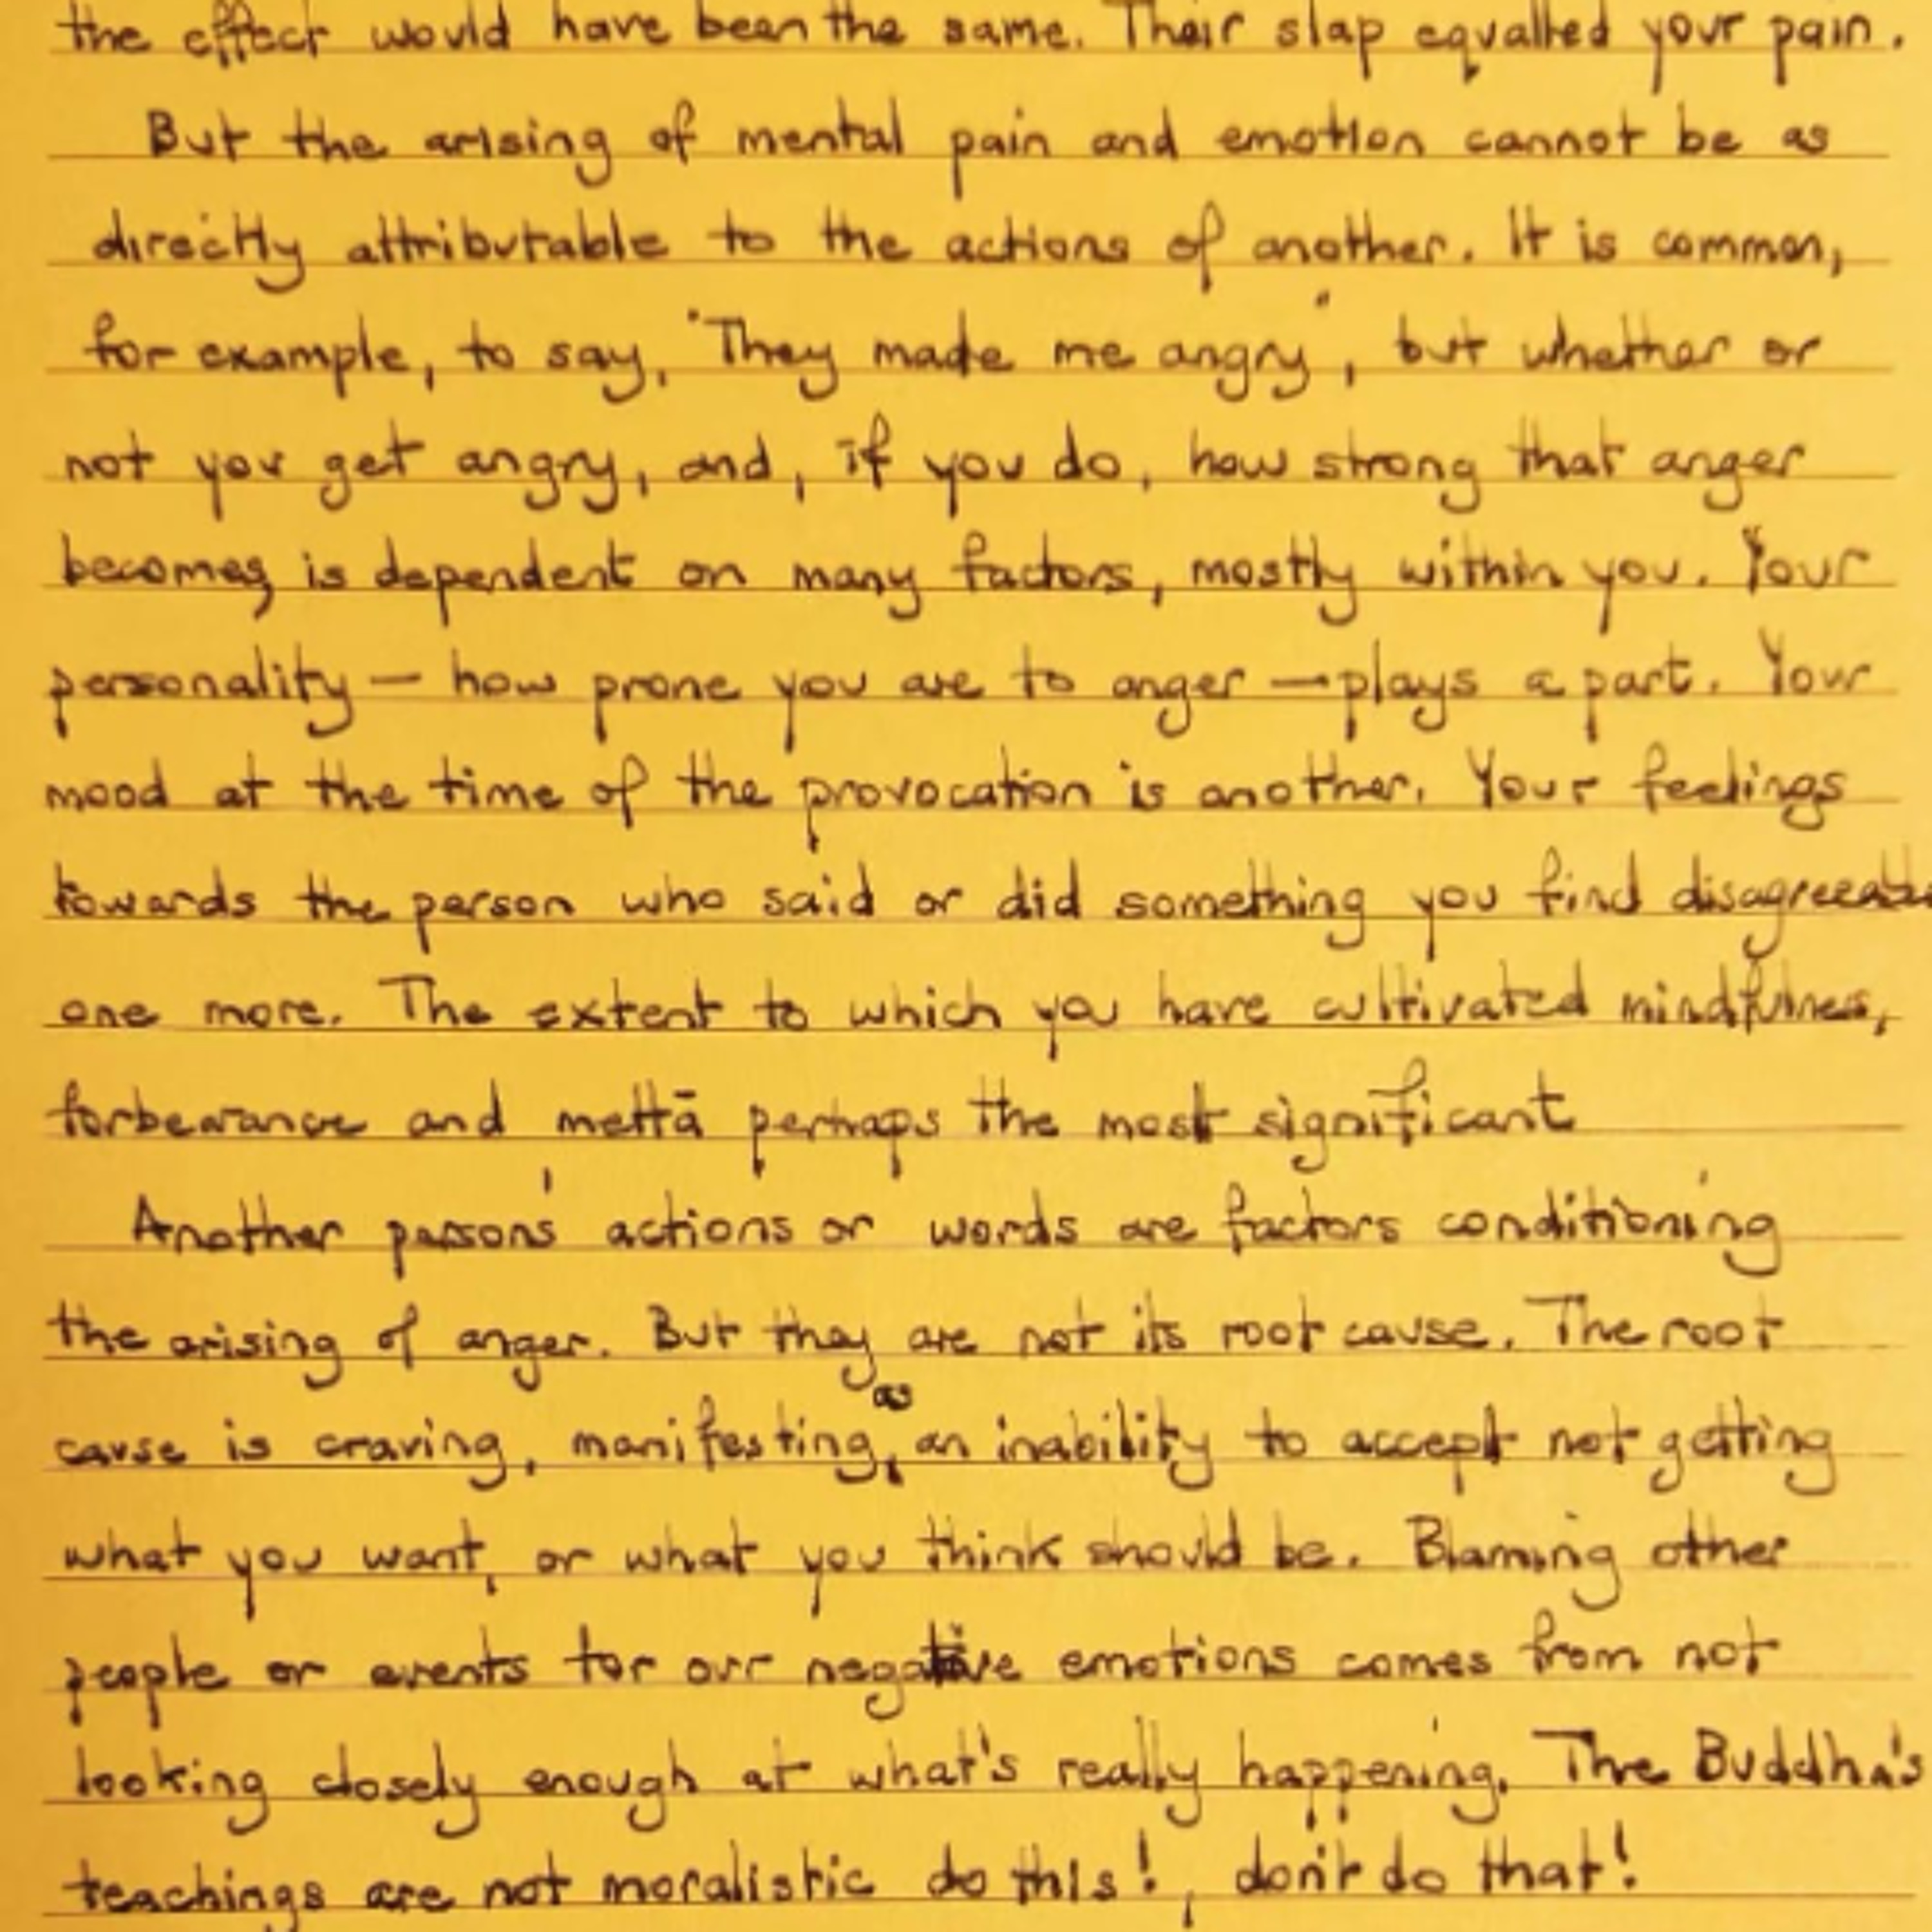 the effect would have been the same. Their slap equalled your pain.
But the arising of mental pain and emotion cannot be as
directly attributable to the actions of another. It is common,
for example, to say, "They made me angry", but whether or
not you get angry, and, if you do, how strong that anger
becomes, is dependent on many factors, mostly within you. Your
personality — how prone you are to anger — plays a part. Your
mood at the time of the provocation is another. Your feelings
towards the person who said or did something you find
one more. The extent to which you have cultivated mindfulness,
forbearance and mettā perhaps the most significant
Another persons' actions or words are factors conditioning
the arising of anger. But they are not its root cause. The root
cause is craving, manifesting as an inability to accept not getting
what you want, or what you think should be. Blaming other
people or events for our negative emotions comes from not
looking closely enough at what's really happening. The Buddha's
teachings are not moralistic do this!, don't do that!